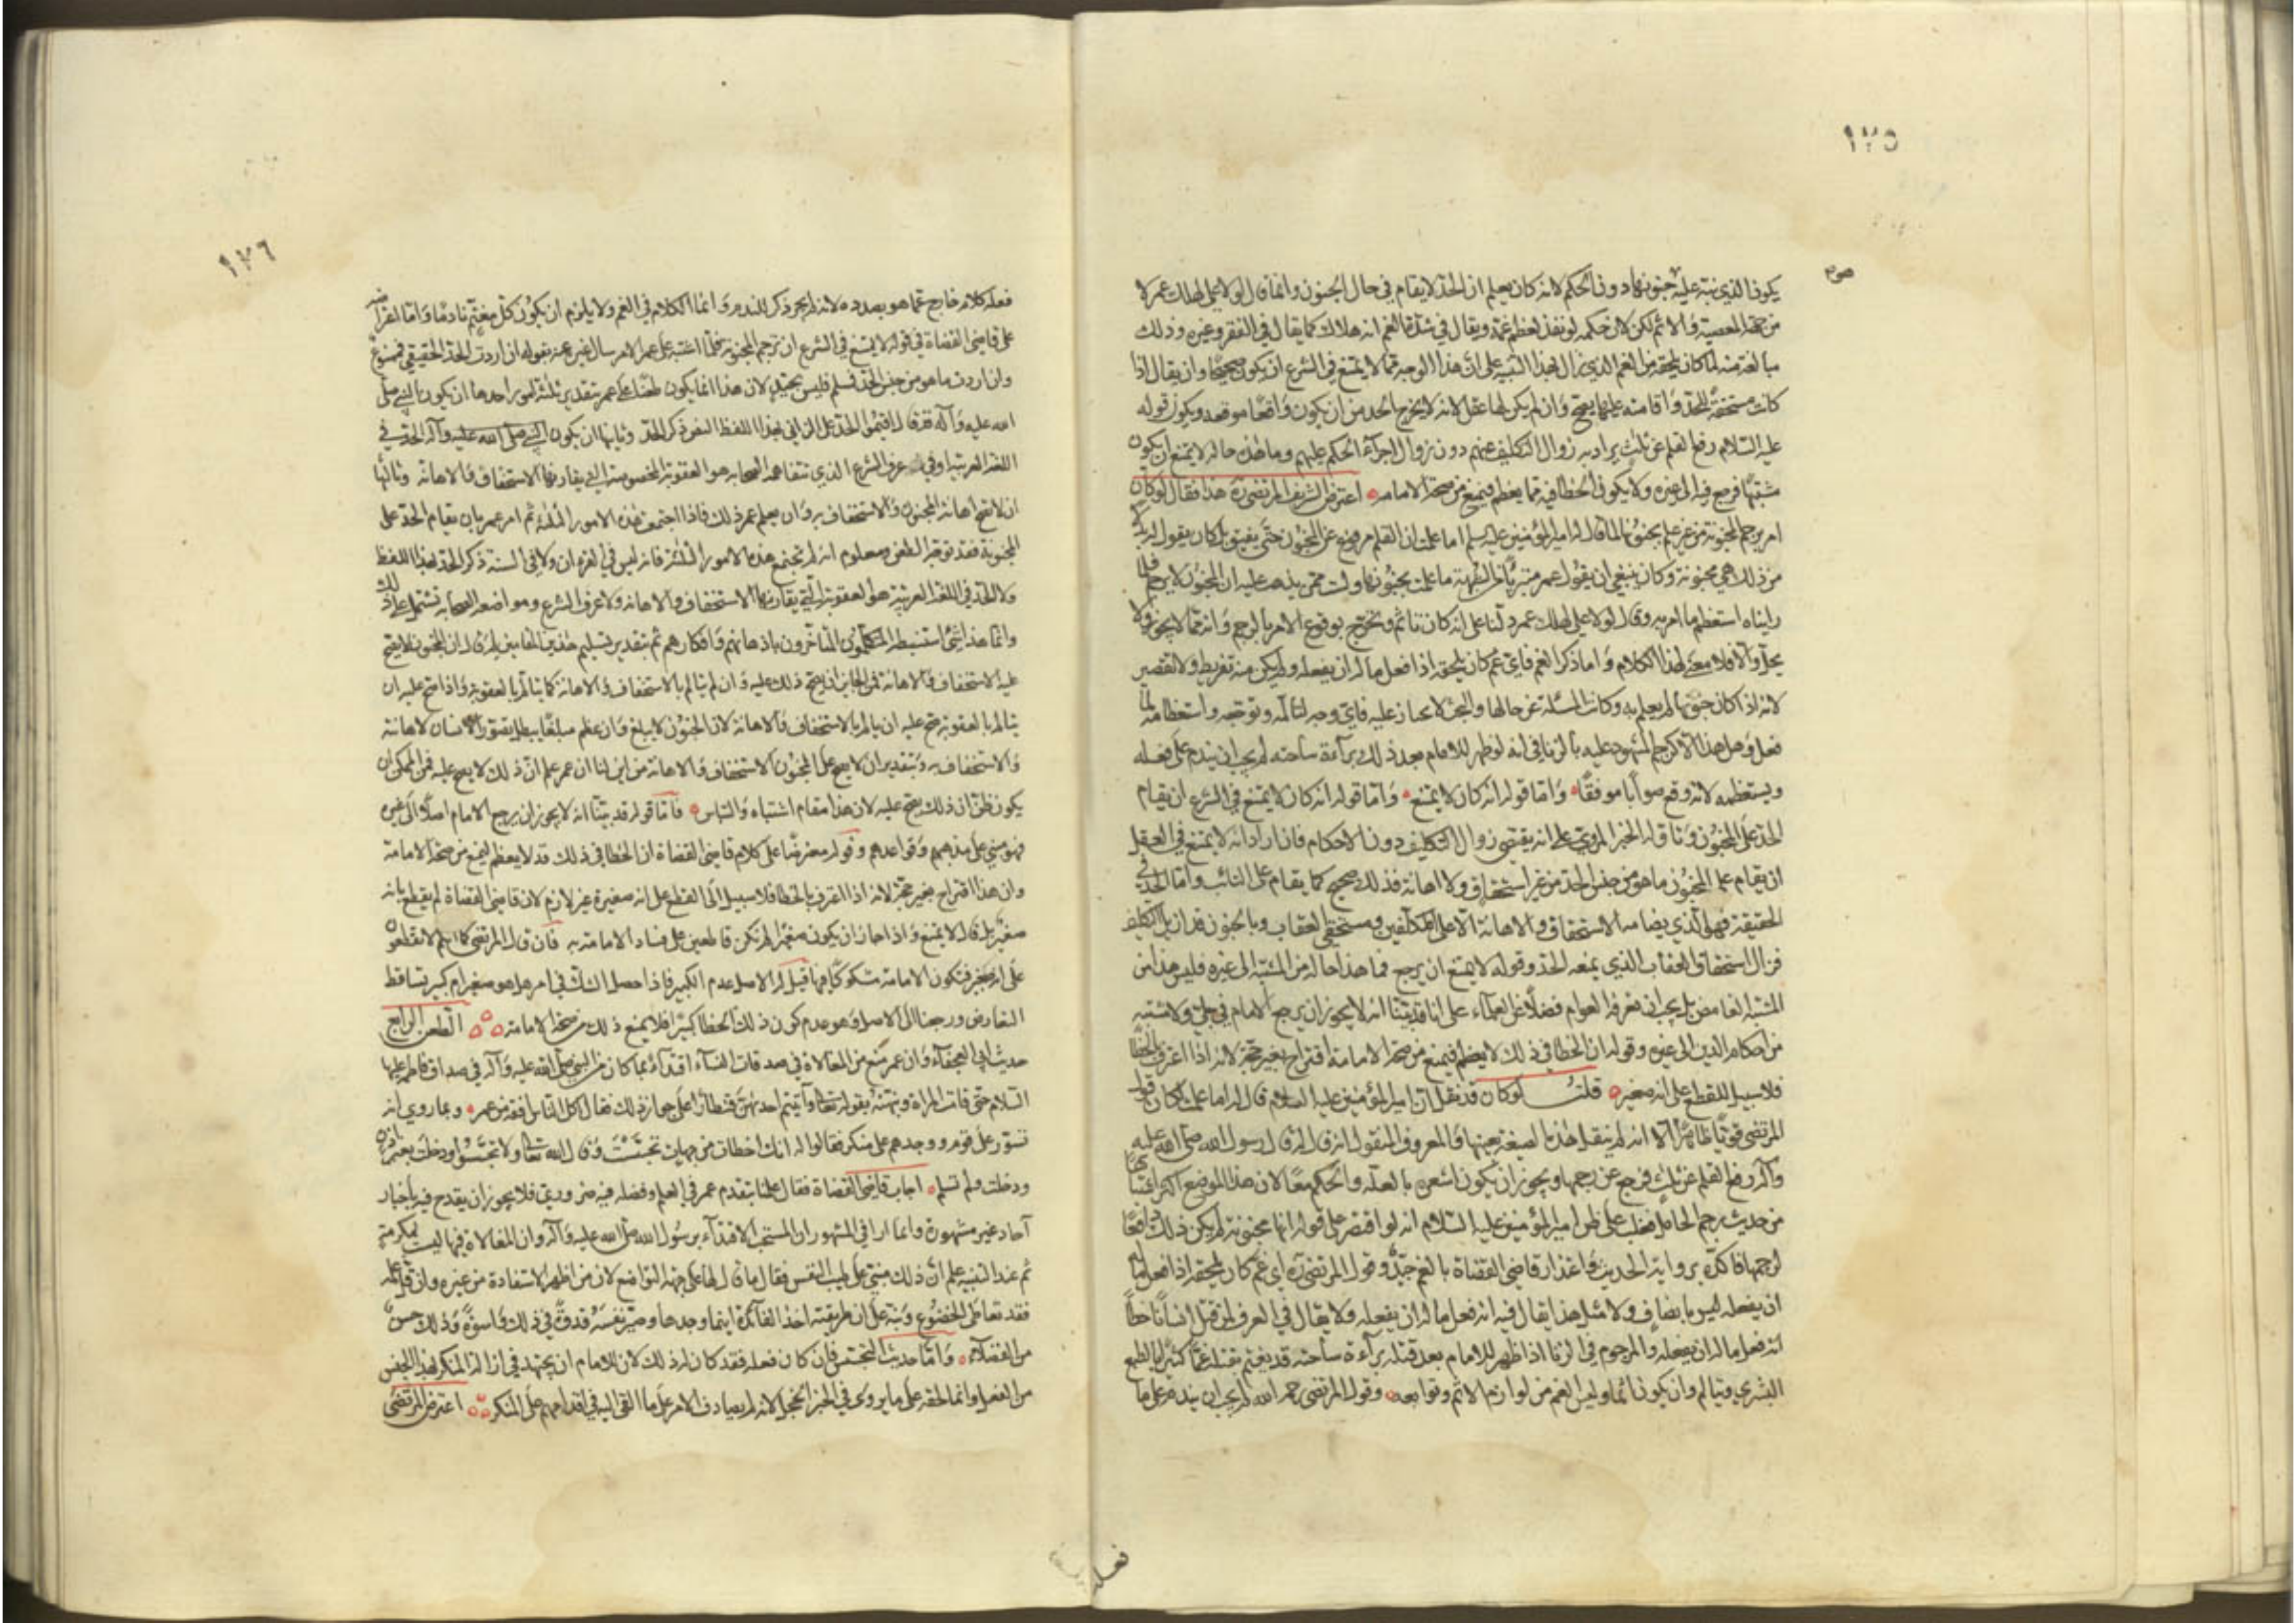 ١٢٥
يكون الذي نبه عليه جنونها دون الحكم لانه كان يعلم ان الحد لا يقام في حال الجنون وانما قال لولا علي لهلك عمر لا
من جهة المعصية والاثم لكن لان حكمه لو نفذ لعظم غمه ويقال في شدة الغم انه هلاك كما يقال في الفقر وغيره وذلك
مبالغة منه لما كان يلحقه من الغم الذي زال بهذا التنبيه على ان هذا الوجه مما لا يمتنع في الشرع ان يكون صحيحا وان يقال اذا
كانت مستحقة للحد واقامته عليها يصح وان لم يكن لها عقل لانه لا يخرج الحد من ان يكون واقعا موقعه ويكون قوله
عليه السلام رفع القلم عن ثلث يراد به زوال التكليف عنهم دون زوال اجراء الحكم عليهم وما هذه حاله لا يمتنع ان يكون
مشتبها فرجع فيه الى غيره ولا يكون الخطا فيه مما يعظم فيمنع من صحة الامامة اعترض الشريف المرتضى ره هذا فقال لو كان
امر برجم المجنونة من غير علم بجنونها لما قال له امير المؤمنين عليه السلم اما علمت ان القلم مرفوع عن المجنون حتى يفيق بل كان يقول له بدلا
من ذلك هي مجنونة وكان ينبغي ان يقول عمر متبرئا من الشبهة ما علمت بجنونها ولست ممن يذهب عليه ان المجنون لا يرجم فلما
رايناه استعظم ما امر به وقال لولا علي لهلك عمر دلنا على انه كان تاثم وتحرج بوقوع الامر بالرجم وانه مما لا يجوز ولا
يحل والا فلا معنى لهذا الكلام واما ذكر الغم فاي غم كان يلحقه اذا فعل ما له ان يفعله ولم يكن منه تفريط ولا تقصير
لانه اذا كان جنونها لم يعلم به وكانت المسئلة عن حالها والبحث لا يجبان عليه فاي وجه لتالمه وتوجعه واستعظامه لما
فعله وهل هذا الا كرجم المشهود عليه بالزنا في انه لو ظهر للامام بعد ذلك براءة ساحته لم يجب ان يندم على فعله
ويستعظمه لانه وقع صوابا موفقا واما قوله انه كان لا يمتنع واما قوله انه كان لا يمتنع في الشرع ان يقام
الحد على المجنون وتاوله الخبر المروي على انه يقتضي زوال التكليف دون الاحكام فان اراد انه لا يمتنع في العقل
ان يقام على المجنون ما هو من جنس الحد من غير استخفاف ولا اهانة فذلك صحيح كما يقام على التائب واما الحد في
الحقيقة فهو الذي يضامه الاستخفاف والاهانة الا على المكلفين ومستحقي العقاب وبالجنون قد ازيل التكليف
فزال استحقاق العقاب الذي يتبعه الحد وقوله لا يمتنع ان يرجع فيما هذا حاله من المشتبه الى غيره فليس هذا من
المشتبه الغامض بل يجب ان يعرفه العوام فضلا عن العلماء على انا قد بينا انه لا يجوز ان يرجع الامام في جلي ولا مشتبه
من احكام الدين الى غيره وقوله ان الخطا في ذلك لا يعظم فيمنع من صحة الامامة اقتراح بغير حجة لانه اذا اعترف بالخطا
فلا سبيل للقطع على انه صغير قلت لو كان قد نقل ان امير المؤمنين عليه السلام قال له اما علمت لكان قول
المرتضى قويا ظاهرا الا انه لم ينقل هذه الصيغة بعينها والمعروف المنقول انه قال له قال رسول الله صلى الله عليه
وآله رفع القلم عن ثلث فرجع عن رجمها ويجوز ان يكون اشعره بالعلة والحكم معا لان هذا الموضع اكثر اشتباها
من حديث رجم الحامل فغلب على ظن امير المؤمنين عليه السلام انه لو اقتصر على قوله انها مجنونة لم يكن ذلك دافعا
لرجمها فاكده برواية الحديث واعتذار قاضي القضاة بالغم جيد وقول المرتضى ره اي غم كان يلحقه اذا فعل ما له
ان يفعله ليس بانصاف ولا مثل هذا يقال فيه انه فعل ما له ان يفعله ولا يقال في العرف لمن قتل انسانا خطا
انه فعل ما له ان يفعله والمرجوم في الزنا اذا ظهر للامام بعد قتله براءة ساحته قد يغتم بقتله غما كثيرا بالطبع
البشري ويتالم وان لم يكن آثما وليس الغم من لوازم الاثم وتوابعه وقول المرتضى رحمه الله لم يجب ان يندم على ما
فعله
١٢٦
فعله كلام خارج عما هو بصدده لانه لم يجر ذكر للندم وانما الكلام في الغم ولا يلزم ان يكون كل مغتم نادما واما اعتراضه
على قاضي القضاة في قوله لا يمتنع في الشرع ان ترجم المجنونة فلما اشتبه على عمر الامر سال غيره عنه بقوله ان اردت الحد الحقيقي فممنوع
وان اردت ما هو من جنس الحد فمسلم فليس بجيد لان هذا انما يكون طعنا على عمر بتقدير ثلثة امور احدها ان يكون النبي صلى
الله عليه وآله قد قال اقيموا الحد على الزاني بهذا اللفظ النص ذكر الحد وثانيها ان يكون الحد في
اللغة العربية او في عرف الشرع الذي يتفاهمه الصحابة هو العقوبة المخصوصة التي يقارنها الاستخفاف والاهانة وثالثها
ان لا يصح اهانة المجنون والاستخفاف به وان يعلم عمر ذلك فاذا اجتمعت هذه الامور الثلثة ثم امر عمر بان يقام الحد على
المجنونة فقد توجه الطعن ومعلوم انه لم تجتمع هذه الامور الثلثة فانه ليس في القران ولا في السنة ذكر الحد بهذا اللفظ
ولا الحد في اللغة العربية هو العقوبة التي يقارنها الاستخفاف والاهانة ولا عرف الشرع ومواضعه الصحابة تشتمل على ذلك
وانما هذا شيء استنبطه المتكلمون المتاخرون باذهانهم وافكارهم ثم بتقدير تسليم هذين المقامين لم قال ان المجنون لا يصح
عليه الاستخفاف والاهانة فمن الجائز ان يصح ذلك عليه وان لم يتالم بالاستخفاف والاهانة كما يتالم بالعقوبة واذا صح عليه ان
يتالم بالعقوبة صح عليه ان يالم بالاستخفاف والاهانة لان الجنون لا يبلغ وان عظم مبلغا يبطل تصور الانسان لاهانته
والاستخفاف به وبتقدير ان لا يصح على المجنون الاستخفاف والاهانة من اين لنا ان عمر علم ان ذلك لا يصح عليه فمن الممكن ان
يكون ظن ان ذلك يصح عليه لان هذا مقام اشتباه والتباس فاما قوله قد بينا انه لا يجوز ان يرجع الامام اصلا الى غيره
فهو مبني على مذهبهم وقواعدهم وقوله معترضا على كلام قاضي القضاة ان الخطا في ذلك قد لا يعظم ليمنع من صحة الامامة
وان هذا اقتراح بغير حجة لانه اذا اعترف بالخطا فلا سبيل الى القطع على انه صغيرة غير لازم لان قاضي القضاة لم يقطع بانه
صغير بل قال لا يمتنع واذا جاز ان يكون صغيرا لم نكن قاطعين على فساد الامامة به فان قال المرتضى كما انكم لا تقطعون
على انه صغير فتكون الامامة مشكوكا فيها قيل له الاصل عدم الكبير فاذا حصل الشك في امر هل هو صغير ام كبير تساقط
التعارض ورجعنا الى الاصل وهو عدم كون ذلك الخطا كبيرا فلا يمنع ذلك من صحة الامامة الطعن الرابع
حديث ابي العجفاء وان عمر منع من المغالاة في صدقات النساء اقتداء بما كان من النبي صلى الله عليه وآله في صداق فاطمة عليها
السلام حتى قامت المراة ونبهته بقوله تعالى وآتيتم احديهن قنطارا على جواز ذلك فقال كل الناس افقه من عمر وبما روي انه
تسور على قوم ووجدهم على منكر فقالوا له انك اخطات من جهات تجسست وقال الله تعالى ولا تجسسوا ودخلت بغير اذن
ودخلت ولم تسلم اجاب قاضي القضاة فقال علمنا بتقدم عمر في العلم وفضله فيه ضروري فلا يجوز ان يقدح فيه باخبار
آحاد غير مشهورة وانما اراد في المشهور ان المستحب الاقتداء برسول الله صلى الله عليه وآله وان المغالاة فيها ليست بمكرمة
ثم عند التنبيه علم ان ذلك مبني على طيب النفس فقال ما قاله على جهة التواضع لان من اظهر الاستفادة من غيره وان قل علمه
فقد تعاطى الخضوع ونبه على ان طريقته اخذ الفائدة اينما وجدها وصير نفسه قدوة في ذلك واسوة وذلك حسن
من الفضلاء واما حديث التجسس فان كان فعله فقد كان له ذلك لان للامام ان يجتهد في ازالة المنكر بهذا الجنس
من الفعل وانما لحقه على ما يروى في الخبر الخجل لانه لم يصادف الامر على ما القي اليه في اقدامهم على المنكر اعترض المرتضى